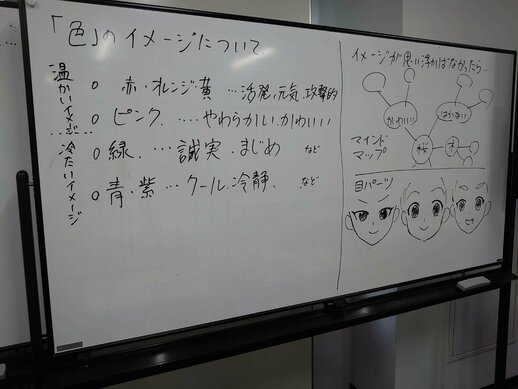 「色」のイメージについて
温かいイメージ
冷たいイメージ
○ 赤・オレンジ・黄 …活発、元気、攻撃的
○ ピンク ……やわらかい、かわいい
○ 緑 …誠実・まじめ など
○ 青・紫…クール、冷静、など
イメージが思い浮かばなかったら…
かわいい
はかない
桜
木
マインド
マップ
目パーツ